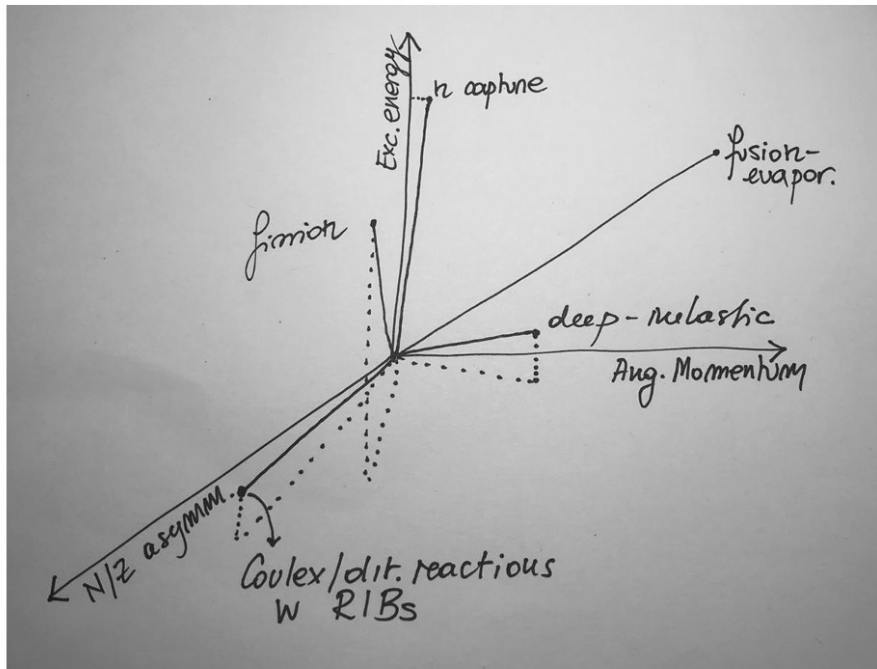 Exc. energy
n capture
fusion-
evapor.
fission
deep-inelastic
Ang. Momentum
N/Z asymm.
Coulex/dir. reactions
w RIBs